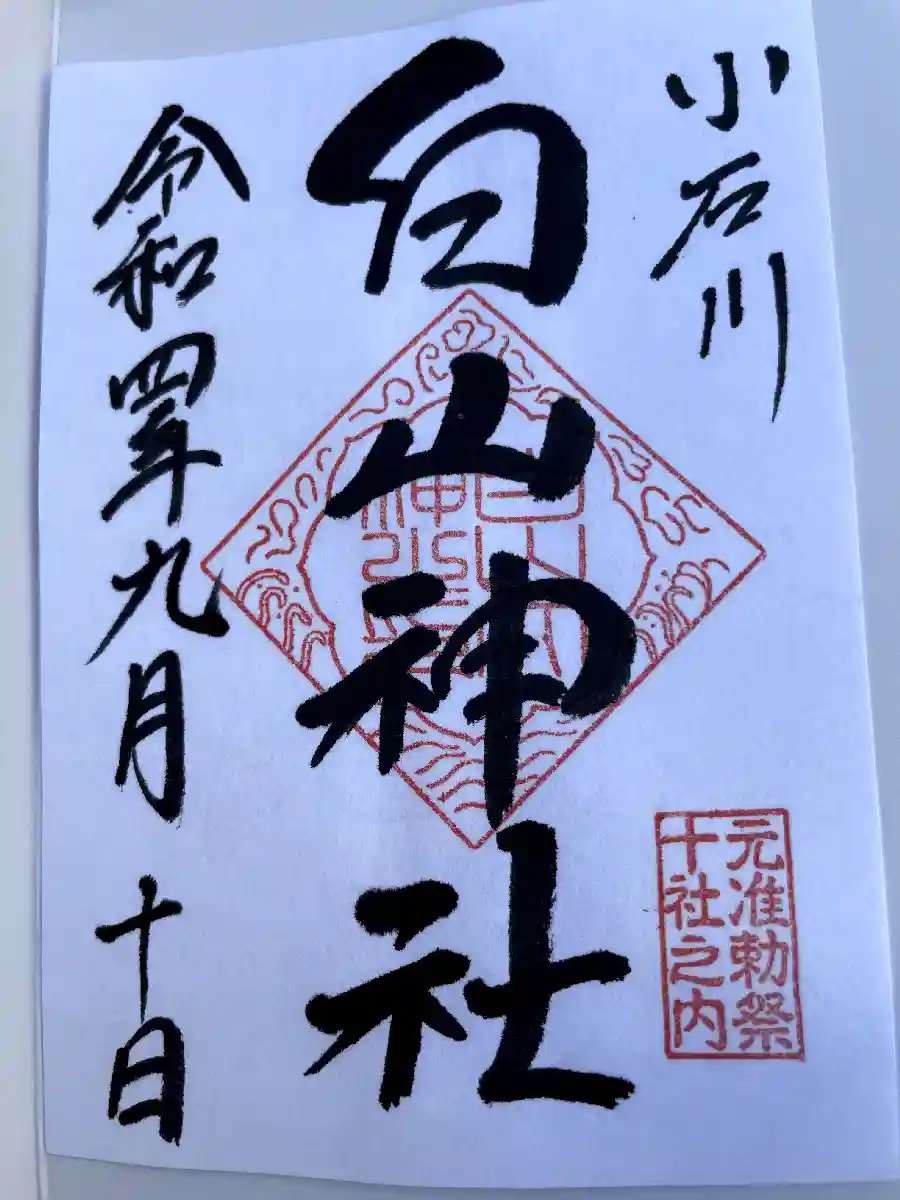 小石川
元准勅祭
十社之内
白山神社
令和四年九月十日